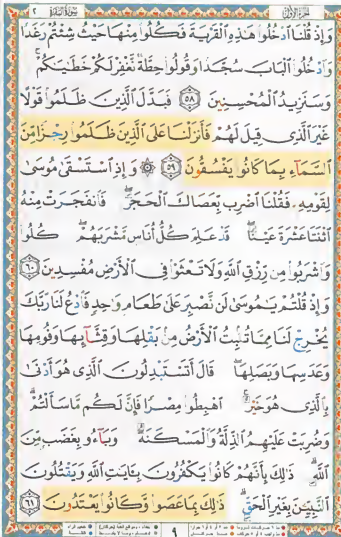 الجزء الأول سورة البقرة ٢
وَإِذْ قُلْنَا ادْخُلُوا هَٰذِهِ الْقَرْيَةَ فَكُلُوا مِنْهَا حَيْثُ شِئْتُمْ رَغَدًا
وَادْخُلُوا الْبَابَ سُجَّدًا وَقُولُوا حِطَّةٌ نَغْفِرْ لَكُمْ خَطَايَاكُمْ
وَسَنَزِيدُ الْمُحْسِنِينَ ٥٨ فَبَدَّلَ الَّذِينَ ظَلَمُوا قَوْلًا
غَيْرَ الَّذِي قِيلَ لَهُمْ فَأَنْزَلْنَا عَلَى الَّذِينَ ظَلَمُوا رِجْزًا مِنَ
السَّمَاءِ بِمَا كَانُوا يَفْسُقُونَ ٥٩ ۞ وَإِذِ اسْتَسْقَىٰ مُوسَىٰ
لِقَوْمِهِ فَقُلْنَا اضْرِبْ بِعَصَاكَ الْحَجَرَ ۖ فَانْفَجَرَتْ مِنْهُ
اثْنَتَا عَشْرَةَ عَيْنًا ۖ قَدْ عَلِمَ كُلُّ أُنَاسٍ مَشْرَبَهُمْ ۖ كُلُوا
وَاشْرَبُوا مِنْ رِزْقِ اللَّهِ وَلَا تَعْثَوْا فِي الْأَرْضِ مُفْسِدِينَ ٦٠
وَإِذْ قُلْتُمْ يَا مُوسَىٰ لَنْ نَصْبِرَ عَلَىٰ طَعَامٍ وَاحِدٍ فَادْعُ لَنَا رَبَّكَ
يُخْرِجْ لَنَا مِمَّا تُنْبِتُ الْأَرْضُ مِنْ بَقْلِهَا وَقِثَّائِهَا وَفُومِهَا
وَعَدَسِهَا وَبَصَلِهَا ۖ قَالَ أَتَسْتَبْدِلُونَ الَّذِي هُوَ أَدْنَىٰ
بِالَّذِي هُوَ خَيْرٌ ۚ اهْبِطُوا مِصْرًا فَإِنَّ لَكُمْ مَا سَأَلْتُمْ ۗ
وَضُرِبَتْ عَلَيْهِمُ الذِّلَّةُ وَالْمَسْكَنَةُ وَبَاءُوا بِغَضَبٍ مِنَ
اللَّهِ ۗ ذَٰلِكَ بِأَنَّهُمْ كَانُوا يَكْفُرُونَ بِآيَاتِ اللَّهِ وَيَقْتُلُونَ
النَّبِيِّينَ بِغَيْرِ الْحَقِّ ۗ ذَٰلِكَ بِمَا عَصَوْا وَكَانُوا يَعْتَدُونَ ٦١
٩